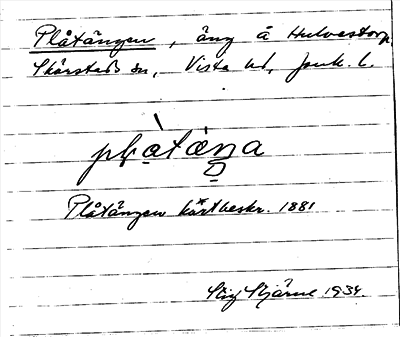 Plåtängen, äng å Hulvestorp,
Skärstads sn, Vista hd, Jönk. l.
plåtæŋa
Plåtängen kartbeskr. 1881
Stig Stjärne 1934.